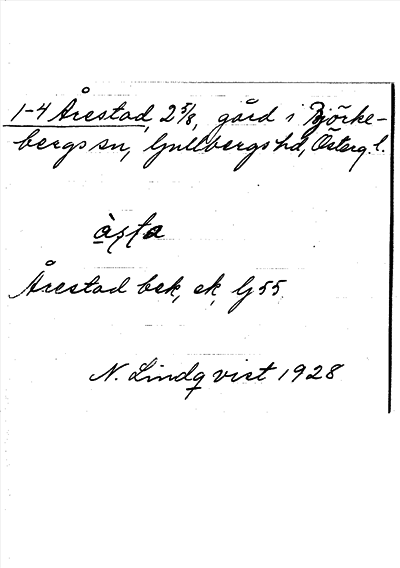 1-4 Årestad, 2 5/8, gård i Björke-
bergs sn, Gullbergs hd, Österg. l.
åsta
Årestad bek, ek, G 55
N. Lindqvist 1928